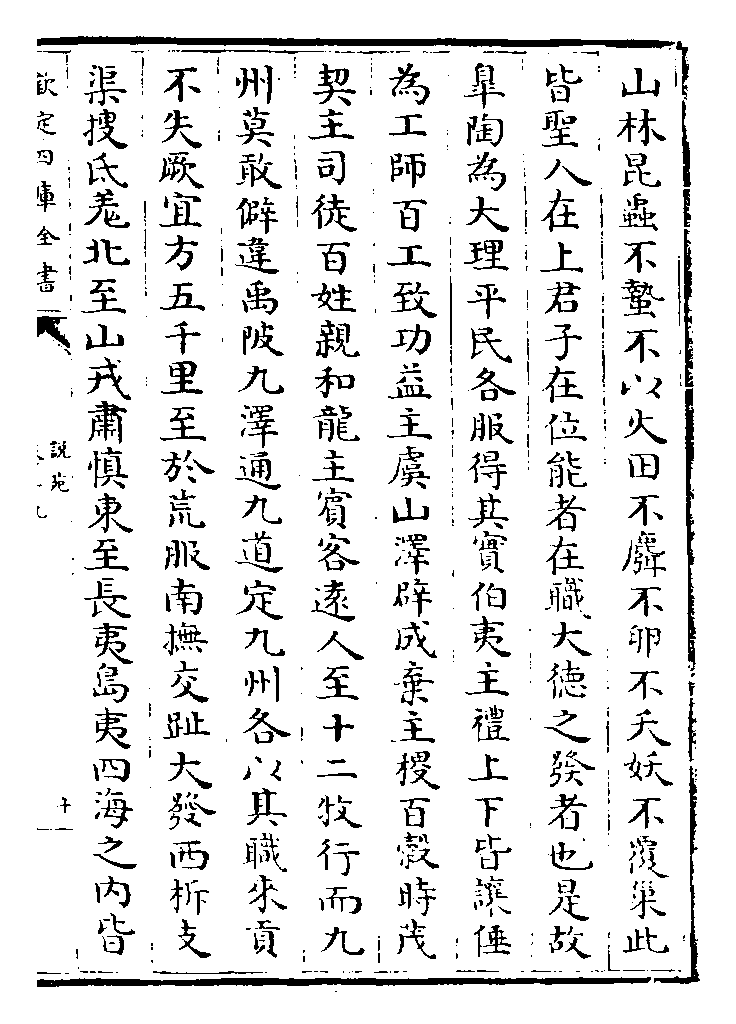 山林昆蟲不蟄不以火田不麛不卵不夭妖不覆巢此
皆聖人在上君子在位能者在職大德之發者也是故
皐陶為大理平民各服得其實伯夷主禮上下皆讓倕
為工師百工致功益主虞山澤辟成棄主稷百糓時茂
契主司徒百姓親和龍主賓客逺人至十二牧行而九
州莫敢僻違禹陂九澤通九道定九州各以其職來貢
不失厥宜方五千里至於荒服南撫交趾大發西析支
渠搜氐羗北至山戎肅慎東至長夷島夷四海之内皆
欽定四庫全書
說苑